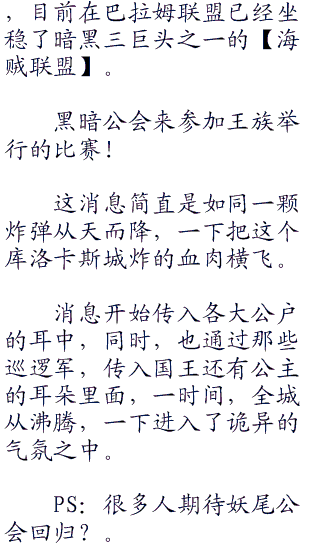 ，目前在巴拉姆联盟已经坐
稳了暗黑三巨头之一的【海
贼联盟】。
黑暗公会来参加王族举
行的比赛！
这消息简直是如同一颗
炸弹从天而降，一下把这个
库洛卡斯城炸的血肉横飞。
消息开始传入各大公户
的耳中，同时，也通过那些
巡逻军，传入国王还有公主
的耳朵里面，一时间，全城
从沸腾，一下进入了诡异的
气氛之中。
PS：很多人期待妖尾公
会回归？。